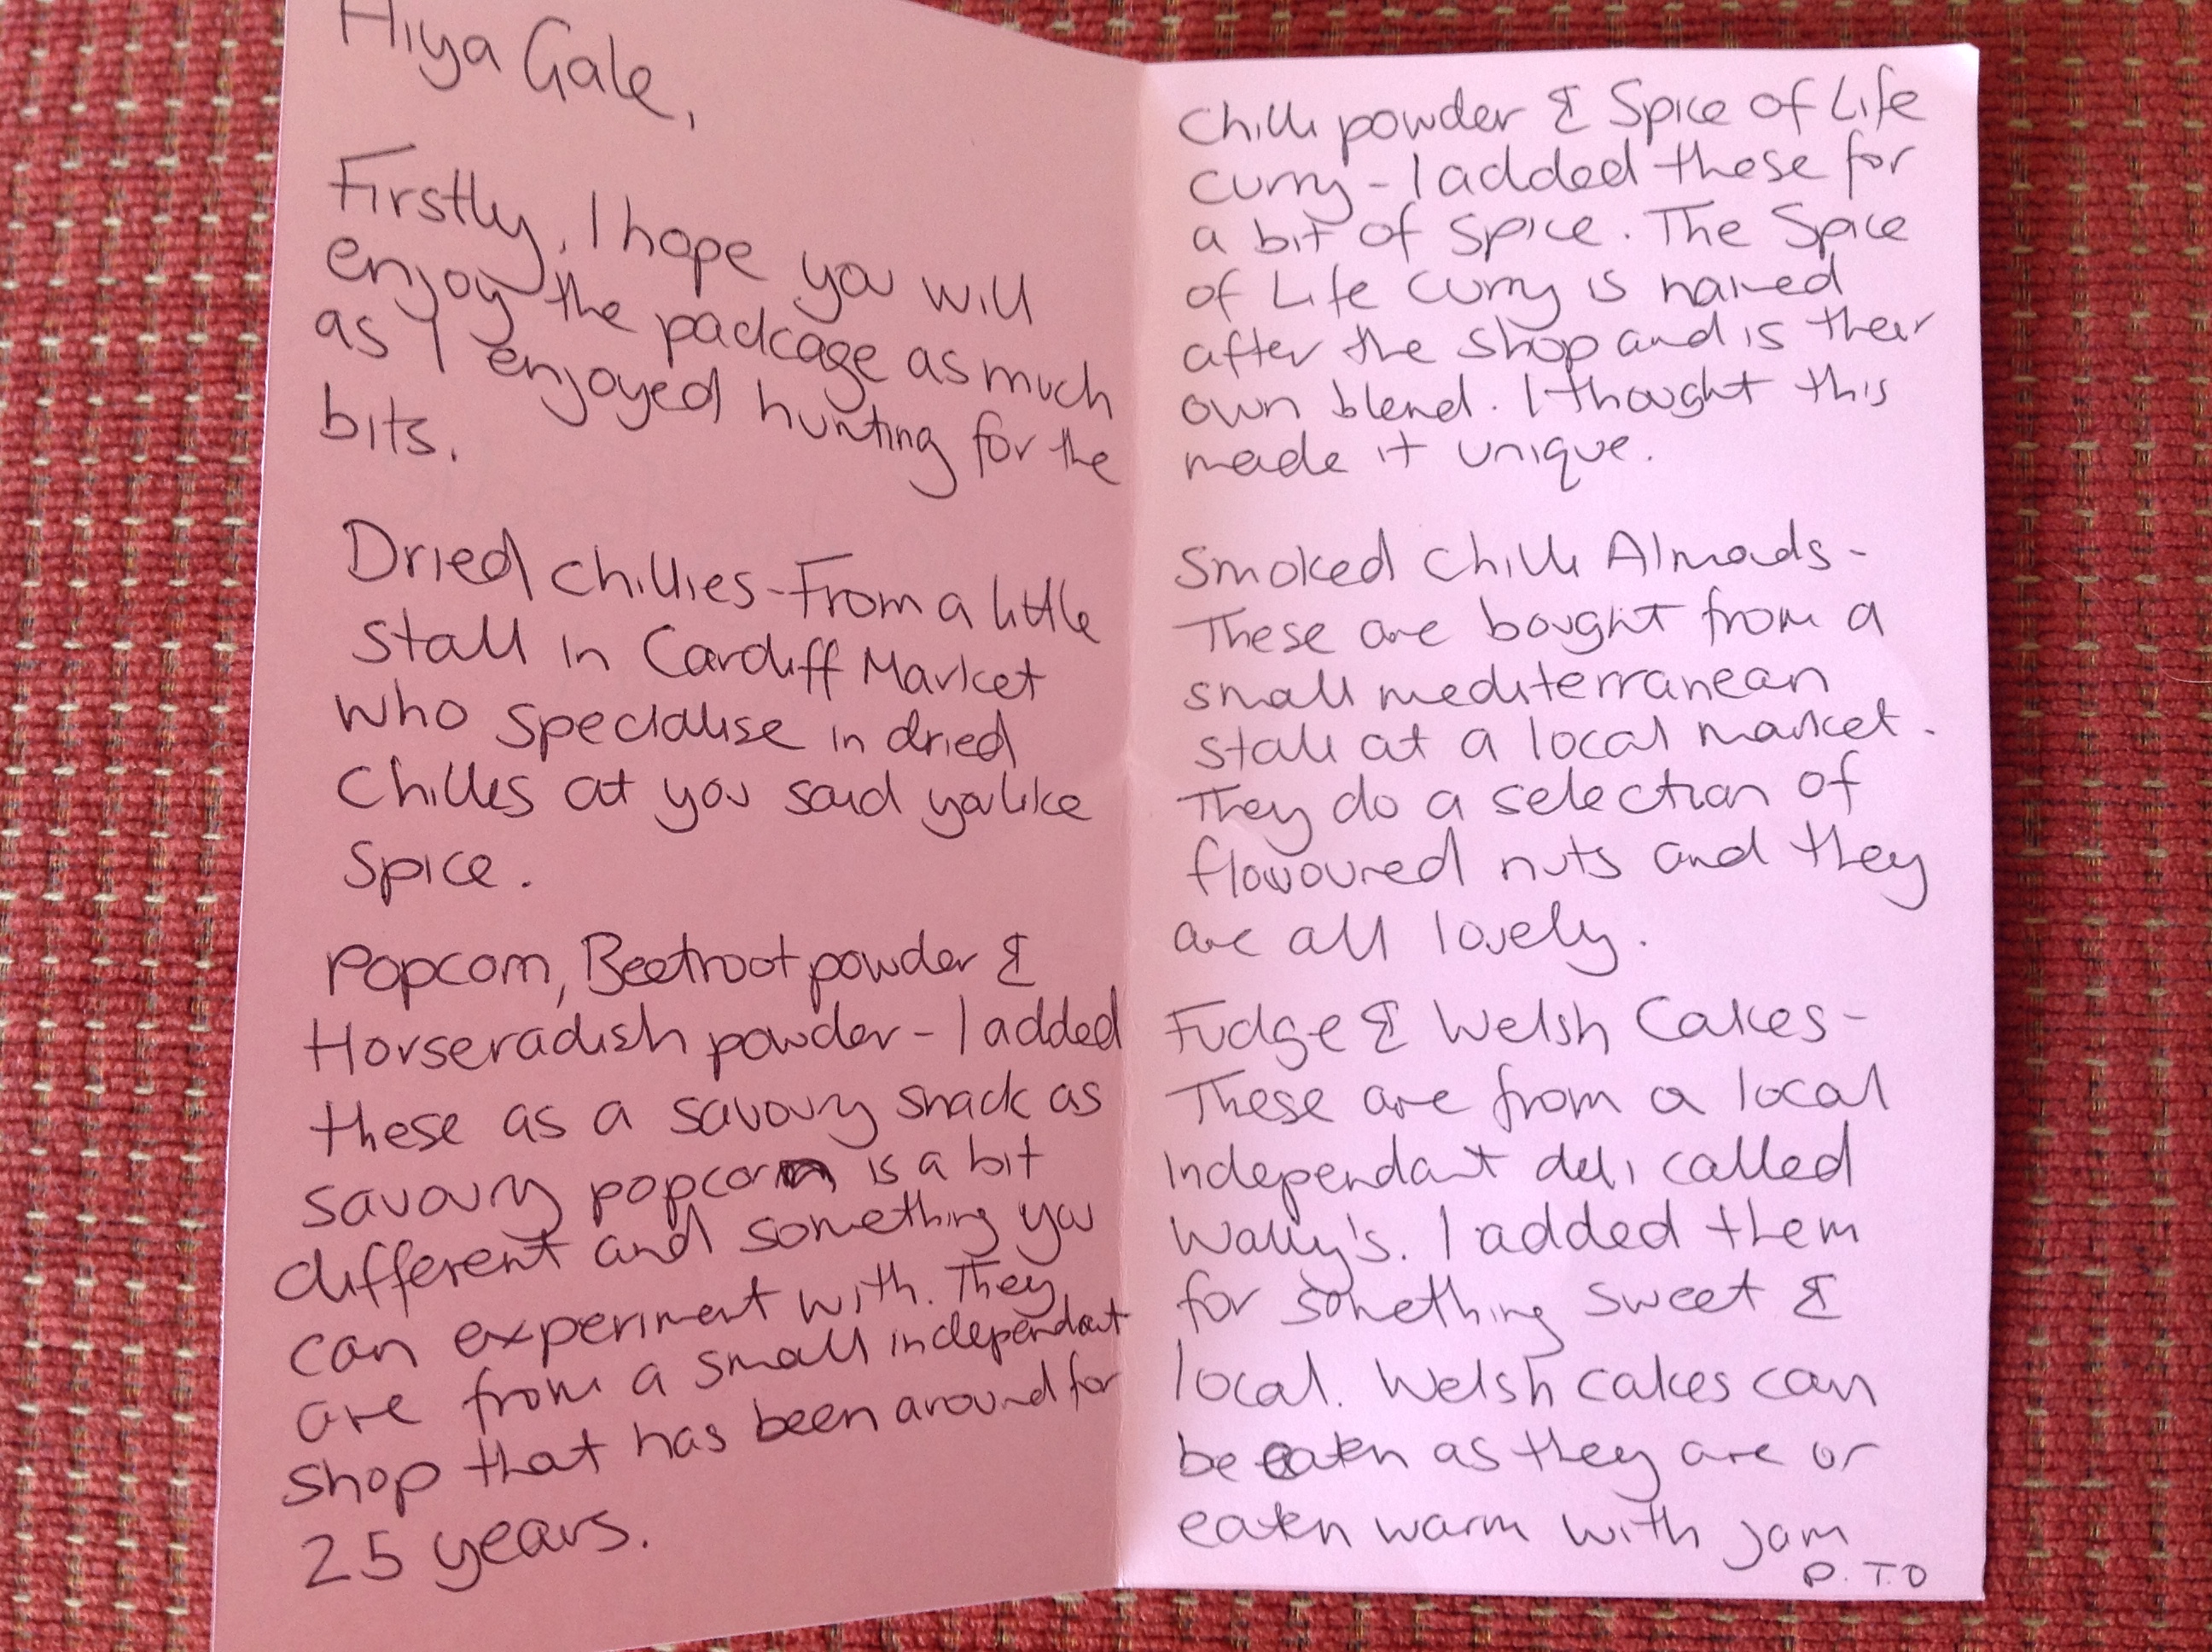 Hiya Gale,
Firstly, I hope you will
enjoy the package as much
as I enjoyed hunting for the
bits.
Dried chillies - From a little
stall in Cardiff Market
who specialise in dried
Chilles at you said you like
Spice.
Popcorn, Beetroot powder &
Horseradish powder - I added
these as a savoury snack as
savoury popcorn is a bit
different and something you
can experiment with. They
are from a small independant
shop that has been around for
25 years.
Chilli powder & Spice of Life
curry - I added these for
a bit of spice. The Spice
of Life curry is named
after the shop and is their
own blend. I thought this
made it unique.
Smoked Chilli Almods -
These are bought from a
small mediterranean
stall at a local market.
They do a selection of
flavoured nuts and they
are all lovely.
Fudge & Welsh Cakes -
These are from a local
independant deli called
Wally's. I added them
for something sweet &
local. Welsh cakes can
be eaten as they are or
eaten warm with jam
P.T.O